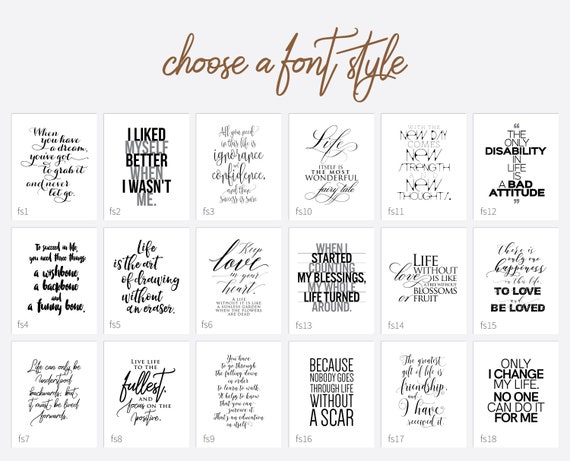 choose a font style
When
you have
a dream,
you've got
to grab it
and never
let go.
fs1
I LIKED
MYSELF
BETTER
WHEN
I WASN'T
ME.
fs2
All you need
in this life is
ignorance
and
confidence,
and then
success is sure
fs3
Life
ITSELF IS
THE MOST
WONDERFUL
fairy tale
fs10
WITH THE
NEW DAY
COMES
NEW
STRENGTH
AND
NEW
THOUGHTS.
fs11
“
THE
ONLY
DISABILITY
IN
LIFE
IS
A BAD
ATTITUDE
”
fs12
To succeed in life,
you need three things:
a wishbone,
a backbone
and
a funny bone.
fs4
Life
is the art
of drawing
without
an eraser.
fs5
Keep
love
in your
heart.
A LIFE
WITHOUT IT IS LIKE
A SUNLESS GARDEN
WHEN THE FLOWERS
ARE DEAD
fs6
WHEN I
STARTED
COUNTING
MY BLESSINGS,
MY WHOLE
LIFE TURNED
AROUND.
fs13
LIFE
WITHOUT
love IS LIKE
A TREE WITHOUT
BLOSSOMS
OR FRUIT
fs14
There is
only one
happiness
in this life
TO LOVE
AND
BE LOVED
fs15
Life can only be
understood
backwards; but
it must be lived
forwards.
fs7
LIVE LIFE
TO THE
fullest,
AND
focus on the
positive.
fs8
You have
to go through
the falling down
in order
to learn to walk.
It helps to know
that you can
survive it.
That's an education
in itself
fs9
BECAUSE
NOBODY GOES
THROUGH LIFE
WITHOUT
A SCAR
fs16
The greatest
gift of life is
friendship,
and
I have
received it.
fs17
ONLY
I CHANGE
MY LIFE.
NO ONE
CAN DO IT
FOR ME
fs18